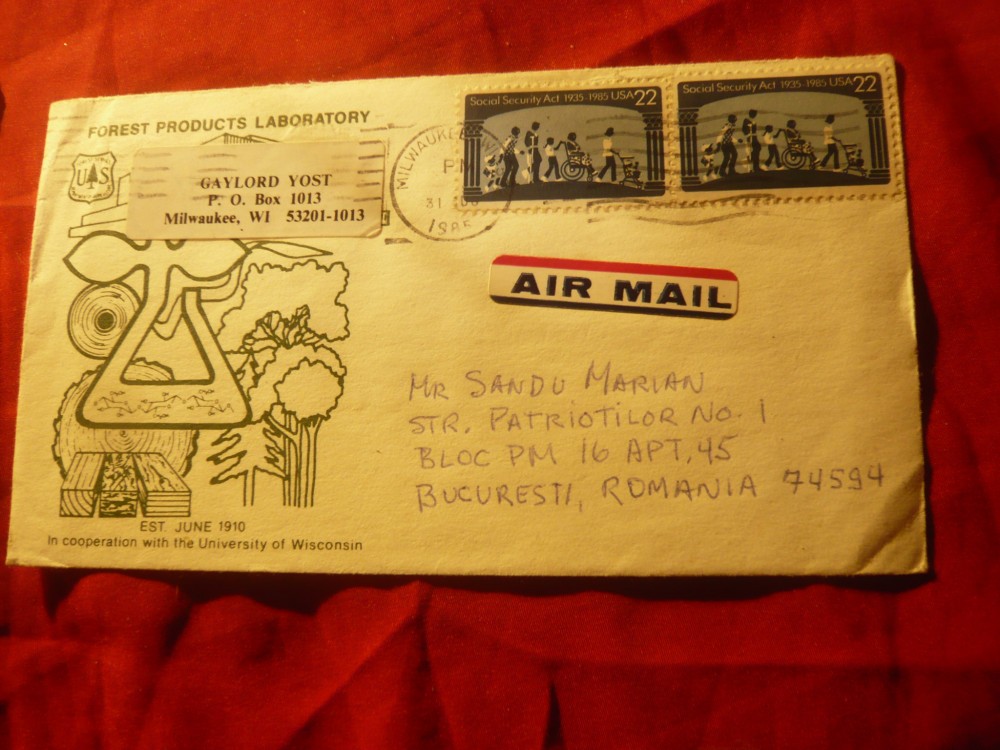 FOREST PRODUCTS LABORATORY
US
GAYLORD YOST
P. O. Box 1013
Milwaukee, WI 53201-1013
MILWAUKEE, WI
PM
31
1985
Social Security Act 1935-1985 USA 22
Social Security Act 1935-1985 USA 22
AIR MAIL
MR SANDU MARIAN
STR. PATRIOTILOR NO. 1
BLOC PM 16 APT. 45
BUCURESTI, ROMANIA 74594
EST. JUNE 1910
In cooperation with the University of Wisconsin